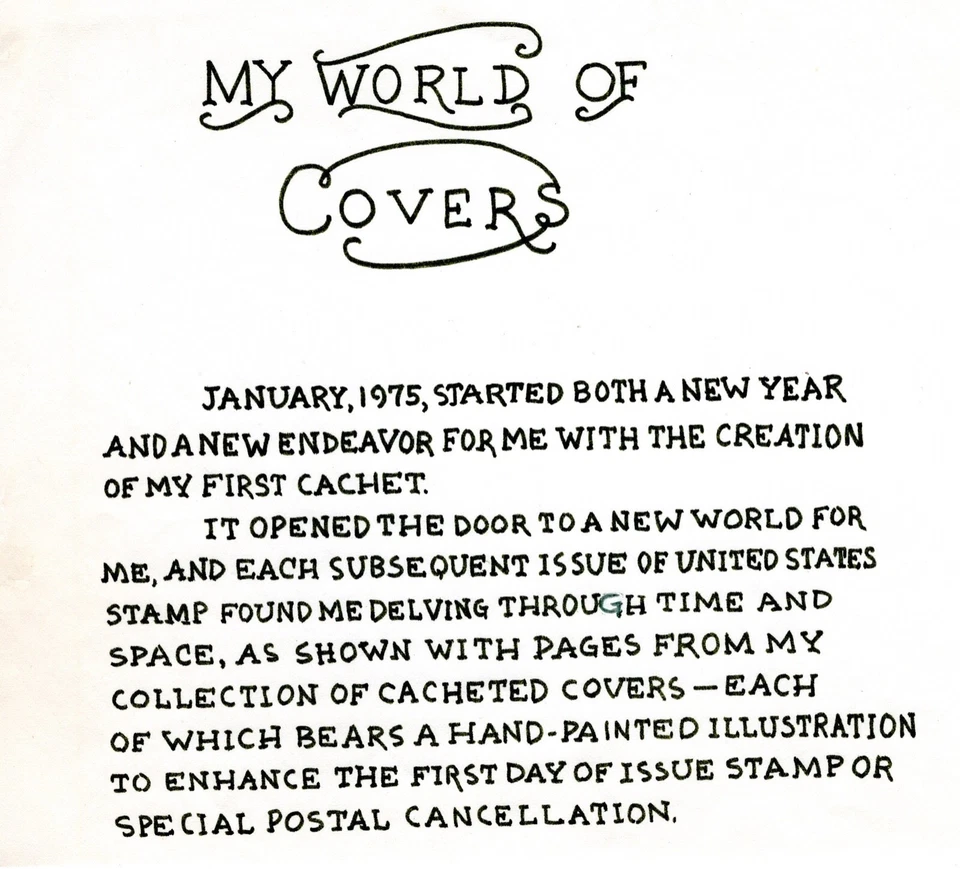 MY WORLD OF
COVERS
JANUARY, 1975, STARTED BOTH A NEW YEAR
AND A NEW ENDEAVOR FOR ME WITH THE CREATION
OF MY FIRST CACHET.
IT OPENED THE DOOR TO A NEW WORLD FOR
ME, AND EACH SUBSEQUENT ISSUE OF UNITED STATES
STAMP FOUND ME DELVING THROUGH TIME AND
SPACE, AS SHOWN WITH PAGES FROM MY
COLLECTION OF CACHETED COVERS — EACH
OF WHICH BEARS A HAND-PAINTED ILLUSTRATION
TO ENHANCE THE FIRST DAY OF ISSUE STAMP OR
SPECIAL POSTAL CANCELLATION.